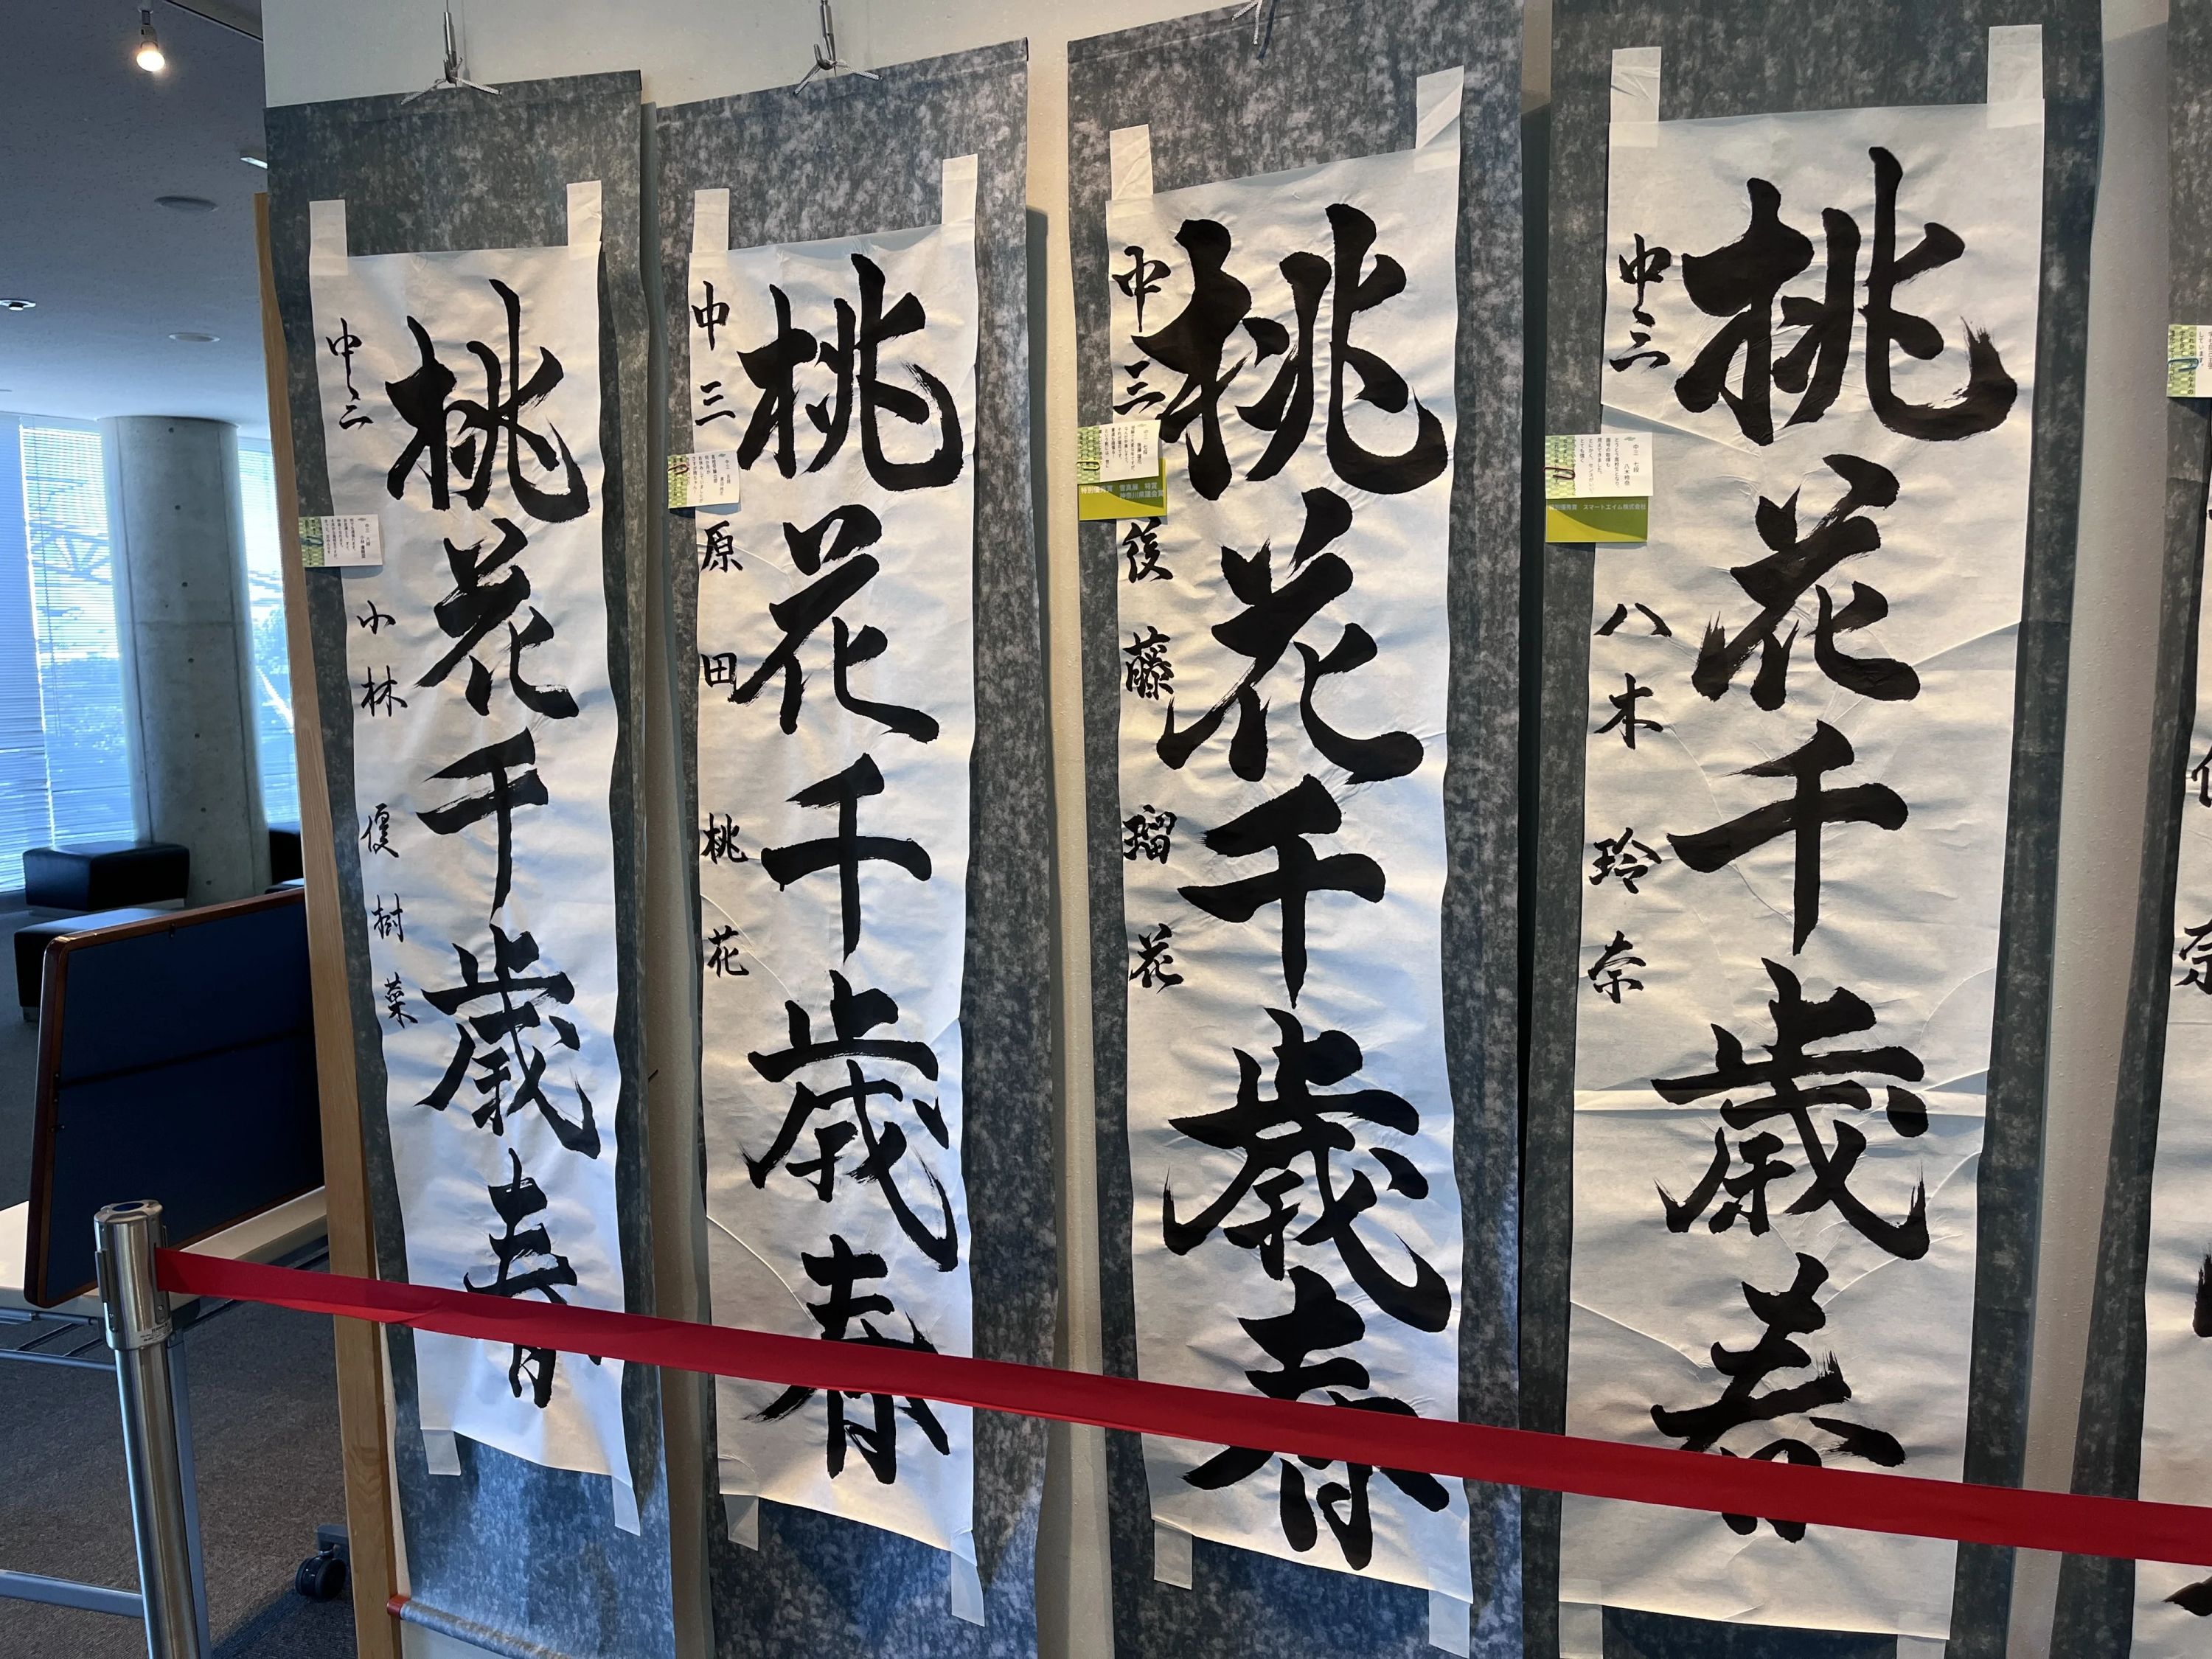 桃花千歳春
中三 小林 優樹菜
桃花千歳春
中三 原田 桃花
桃花千歳春
中三 後藤 瑠花
特別優秀賞
神奈川県議会賞
桃花千歳春
中三 八木 玲奈
特別優秀賞 スマートエイム株式会社